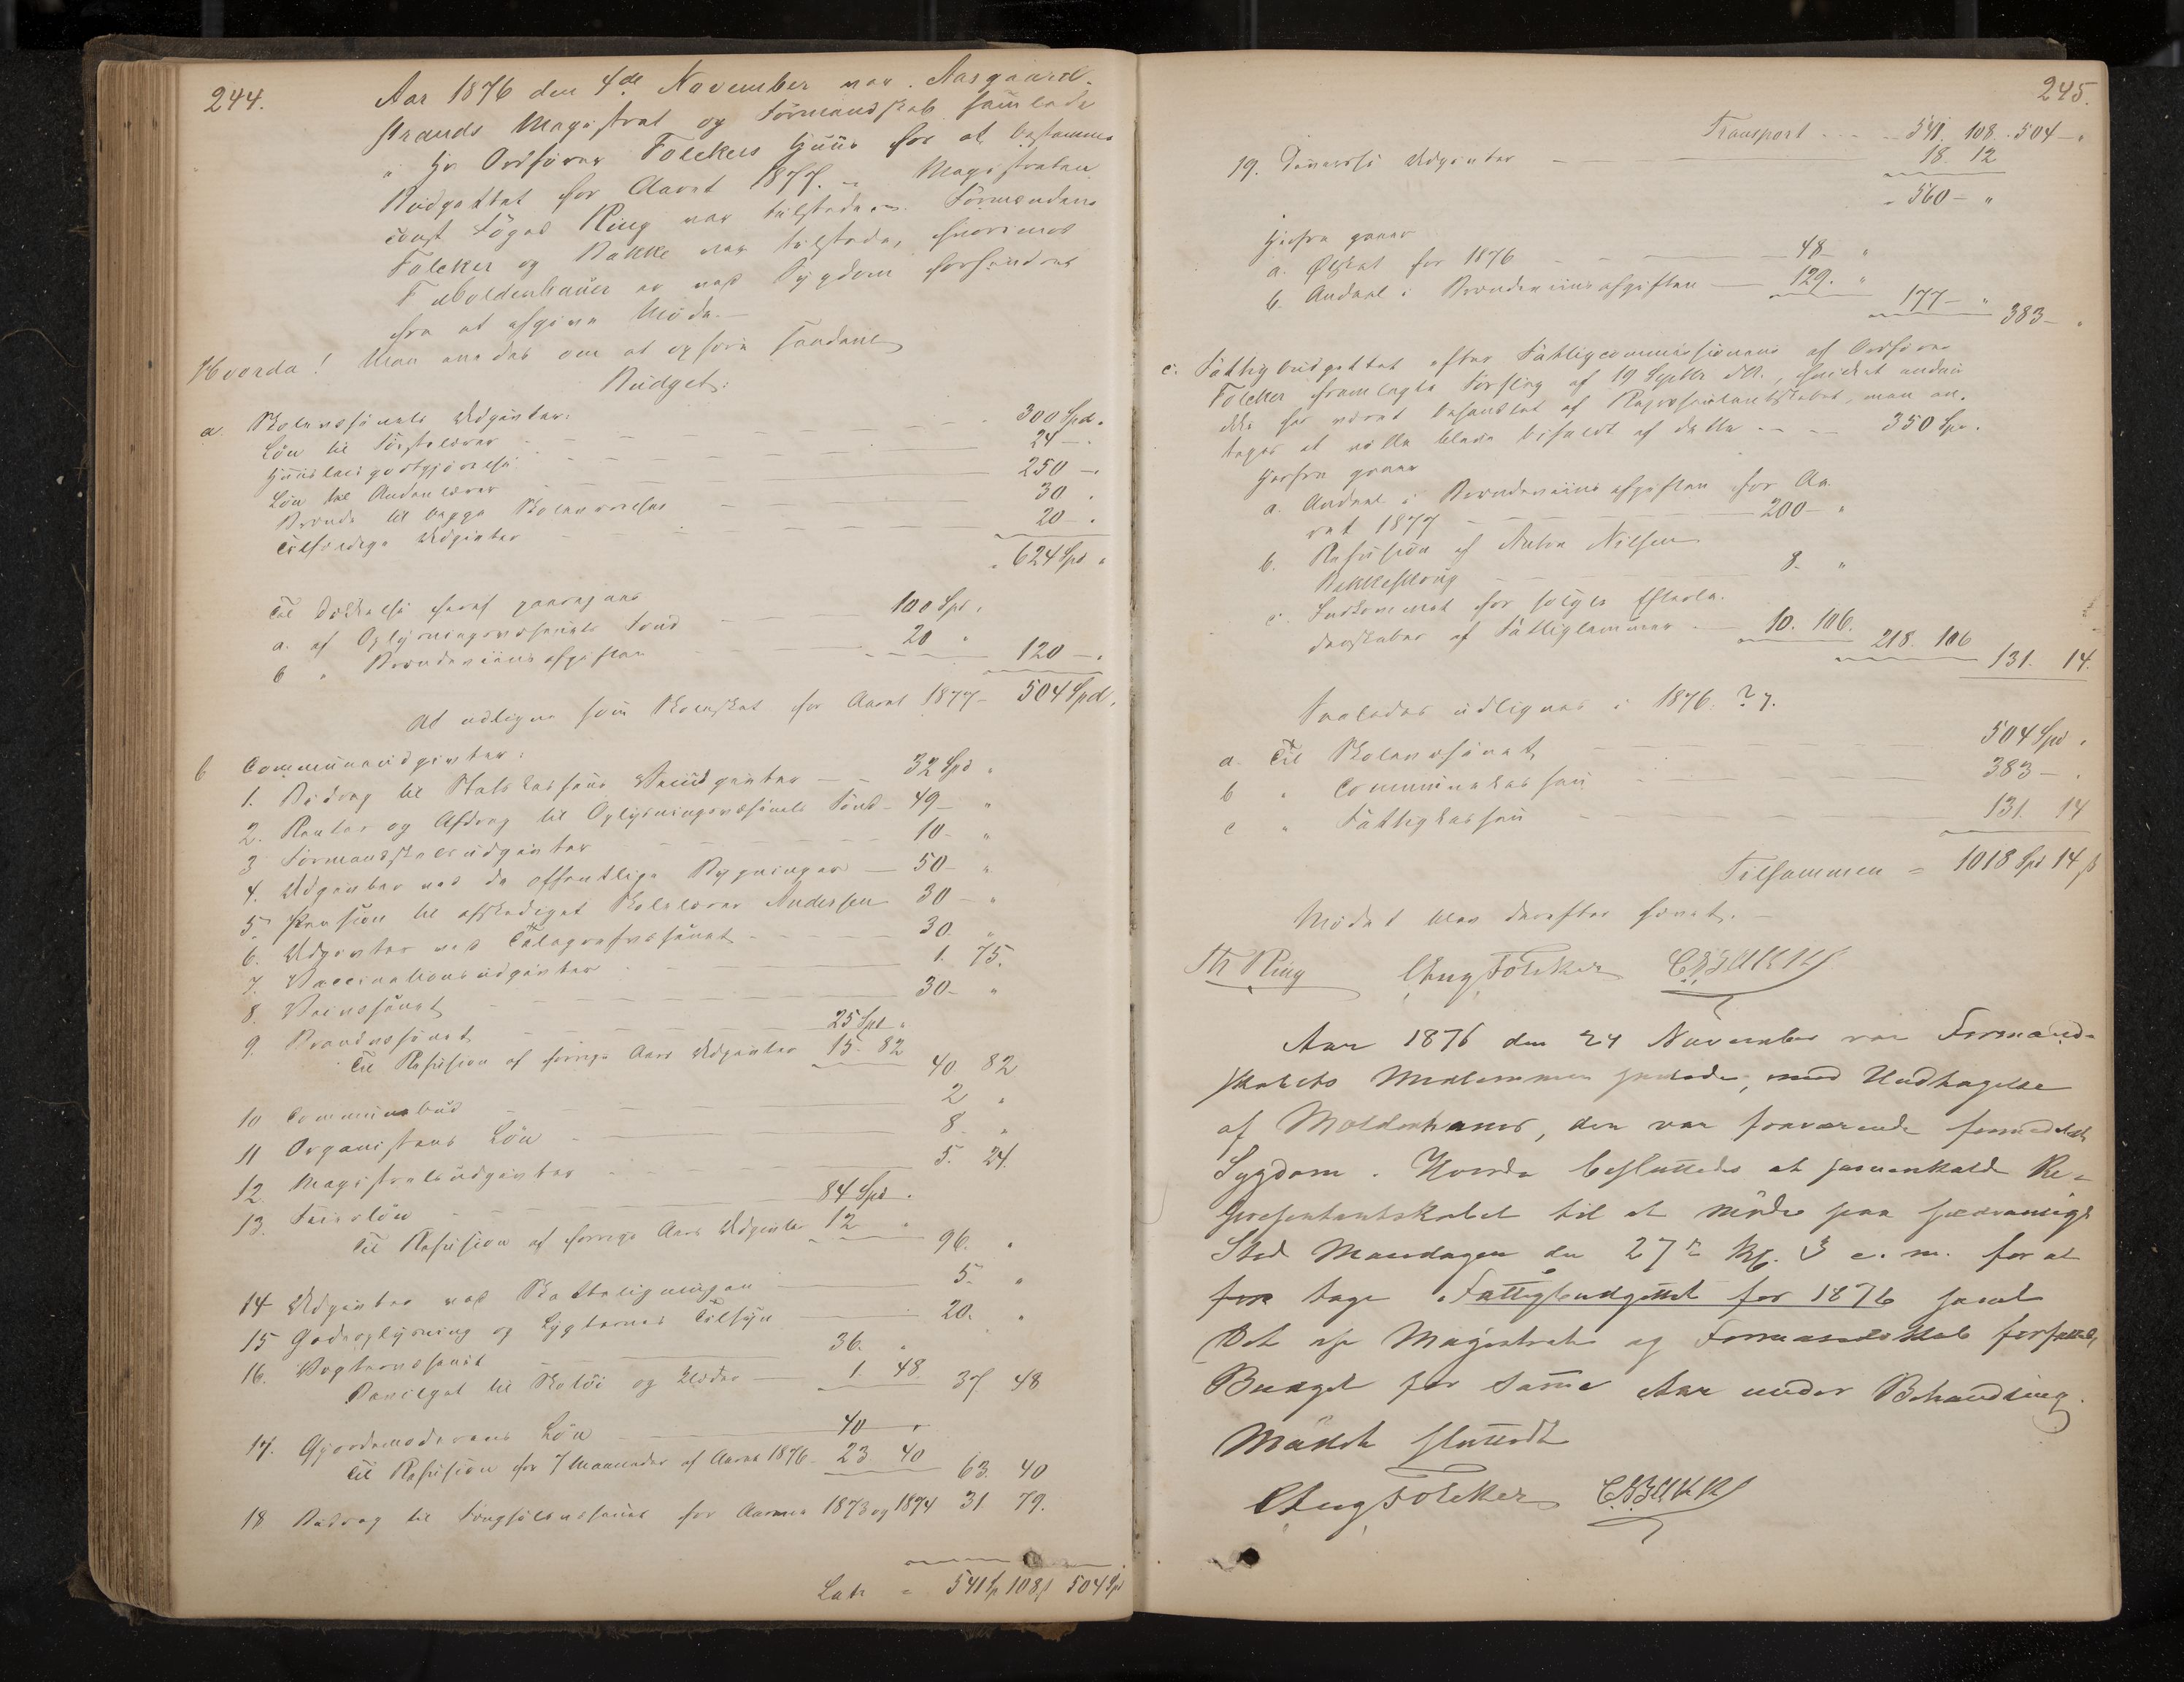 244.
Aar 1876 den 4de November var Aasgaard-
strands Magistrat og Formandskab samlede
i Hr Ordfører Foickers Huus for at bestemme
Budgettet for Aaret 1877. - Magistraten
const Foged Ring var tilstede. Formændene
Foicker og Bakke var tilstede, hvorimod
F Moldenhauer er ved Sygdom forhindret
fra at afgive Møde. -
Hvorda! Man enedes om at opføre saadant
Budget:
a. Skolevæsenets Udgivter:
Løn til Førstelærer - - - 300 Spd. "
Huusleiegodtgjørelse - - - 24 - "
Løn til Andenlærer - - - 250 - "
Brænde til begge Skoleværelser - - - 30 "
Tilfældige Udgivter - - - 20 - "
624 Spd "
Til Dækkelse heraf paaregnes
a. af Oplysningsvæsenets Fond - - 100 Spd. "
b " Brændeviinsafgiften - - 20 " 120 - "
At udligne som Skoleskat for Aaret 1877 - 504 Spd.
b Communeudgivter:
1. Bidrag til Statskassens Udgivter - - 32 Spd "
2. Renter og Afdrag til Oplysningsvæsenets Fond - 49 - "
3 Formandskabsudgivter - - - 10 - "
4. Udgivter ved de offentlige Bygninger - 50 - "
5. Pension til afskediget Skolelærer Andersen 30 - "
6. Udgivter ved Telegrafvæsenet - - - 30. "
7. Vaccinationsudgivter - - - 1. 75.
8. Veivæsenet - - - 30 - "
9. Brandvæsenet - - - 25 Spd "
Til Refusion af forrige Aars Udgivter 15. 82 40 82
10 Communebud - - - 2 "
11 Organistens Løn - - - 8. "
12. Magistratsudgivter - - - 5. 24.
13. - - - 84 Spd "
Til Refusion af forrige Aars Udgivter 12 " 96. "
14 Udgivter ved Skatteligningen - - - 5. "
15 Gadeoplysning og Lygternes Tilsyn - - 20. "
16. Vægtervæsenet - - - 36. "
Bevilget til Skotøi og Klæder - 1. 48. 37 48
17. Gjordemoderens Løn - - - 40 - "
Til Refusion for 7 Maaneder af Aaret 1876 - 23. 40 63. 40
18 Bidrag til Fængselsvæsenet for Aarene 1873 og 1874 31. 79.
Lat = 541 Sp 108 ß 504 Spd
245.
Transport - - - 541. 108. 504 - "
19. Udgivter - - - 18. 12
560 - "
Herfra gaaer
a. for 1876 - - - 48 - "
b. Andeel i Brændeviinsafgiften - 129. " 177 - " 383 - "
c. Fattigbudgettet efter Fattigcommissionens af Ordfører
Foicker fremlagte Forslag af 19 Septbr d.A., hvilket endnu
ikke har været behandlet af Repræsentantskabet, men an-
tages at ville blive bifaldt af dette - - - 350 Spd.
Herfra gaaer
a. Andeel i Brændeviinsafgiften for Aa-
ret 1877 - - - 200 - "
b. Refusion af Anton Nilsen
- - - 8. "
c. Indkommet for solgte Efterla-
denskaber af Fattiglemmer - 10. 106. 218. 106 131. 14.
Saaledes udlignes i 1876. ? 7.
a. Til Skolevæsenet - - - 504 Spd "
b " Communekassen - - - 383 - "
c " Fattigkassen - - - 131. 14
Tilsammen = 1018 Spd 14 ß
Mødet blev derefter hævet.
Th Ring Aug Foicker C. Bakke
Aar 1876 den 24 November var Formand-
skabets Medlemmer samlede, med Undtagelse
af Moldenhauer, der var fraværende formedelst
Sygdom. Hvorda besluttedes at sammenkalde Re-
præsentantskabet til at møde paa sædvanligt
Sted Mandagen den 27de Kl. 3 e. m. for at
for tage Fattigbudgettet for 1876 samt
Det af Magistrat og Formandskab forfattede
Budget for samme Aar under Behandling.
Mødet sluttedt
Aug Foicker C. Bakke